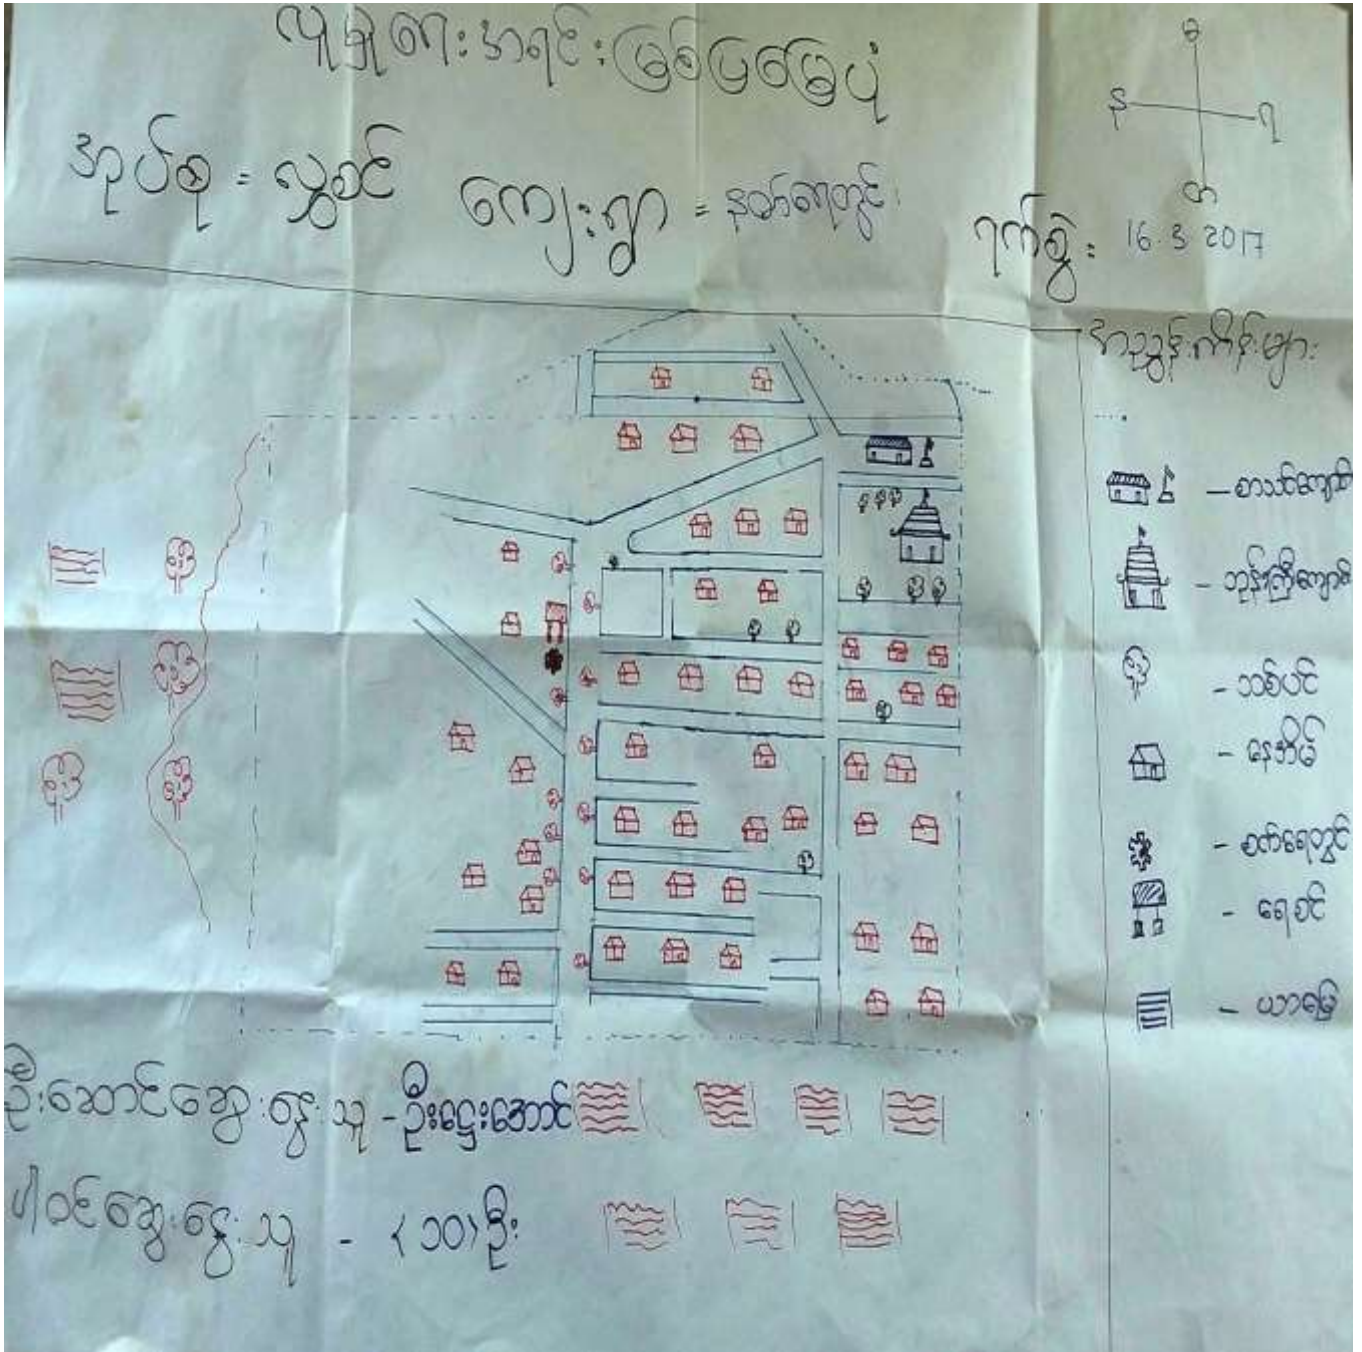 လူမှုရေးအရင်းမြစ်ပြမြေပုံ
မ
န
ရ
တ
အုပ်စု = လွှစင် ကျေးရွာ = နတ်ရေတွင်း
ရက်စွဲ = 16.3.2017
အညွှန်းကိန်းများ
- စာသင်ကျောင်း
- ဘုန်းကြီးကျောင်း
- သစ်ပင်
- နေအိမ်
- စက်ရေတွင်း
- ရေစင်
- ယာမြေ
ဦးဆောင်ဆွေးနွေးသူ - ဦးဌေးအောင်
ပါဝင်ဆွေးနွေးသူ - (၁၀)ဦး